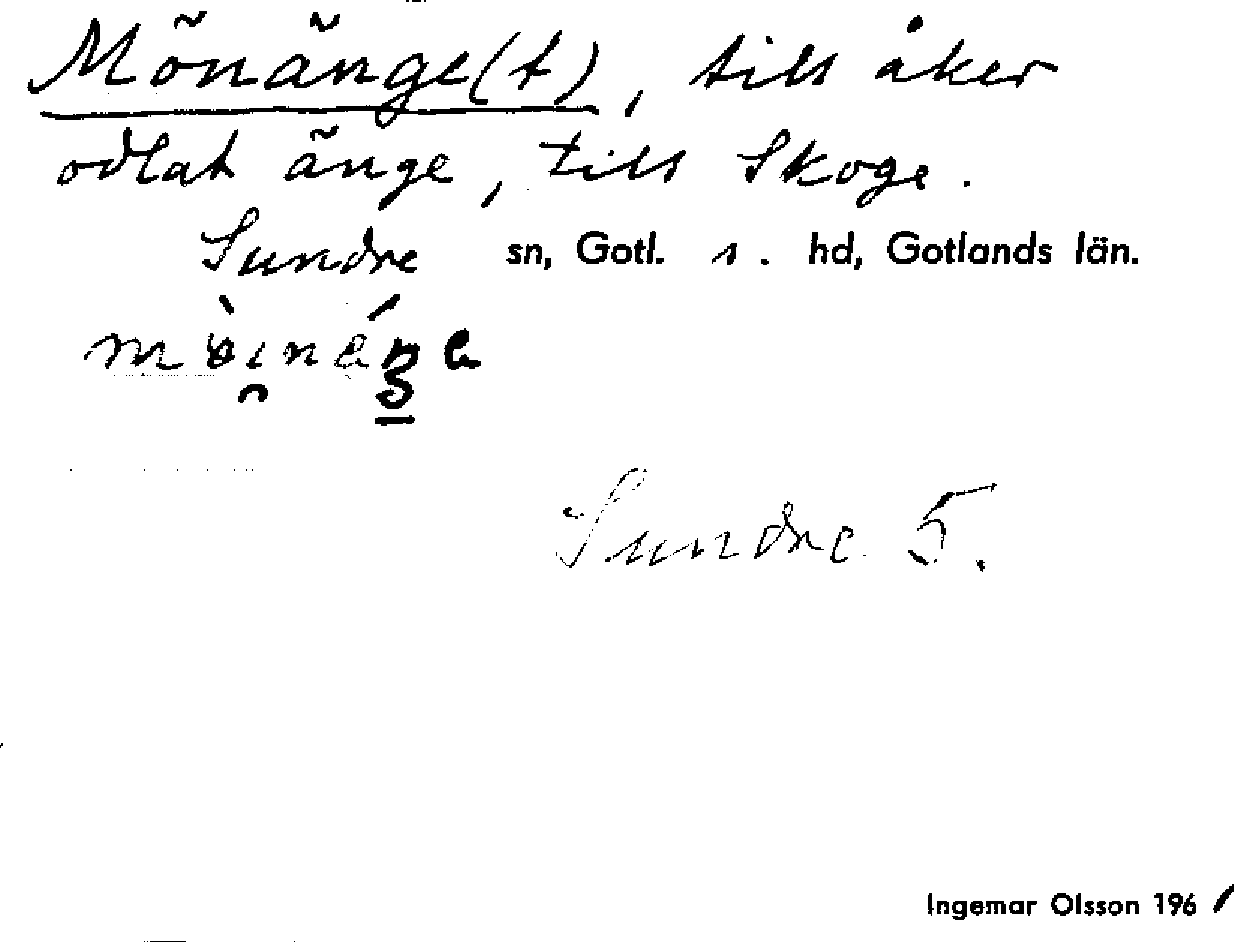 Mönänge(t), till åker
odlat änge, till Skoge.
Sundre sn, Gotl. s. hd, Gotlands län.
Sundre 5.
Ingemar Olsson 1961